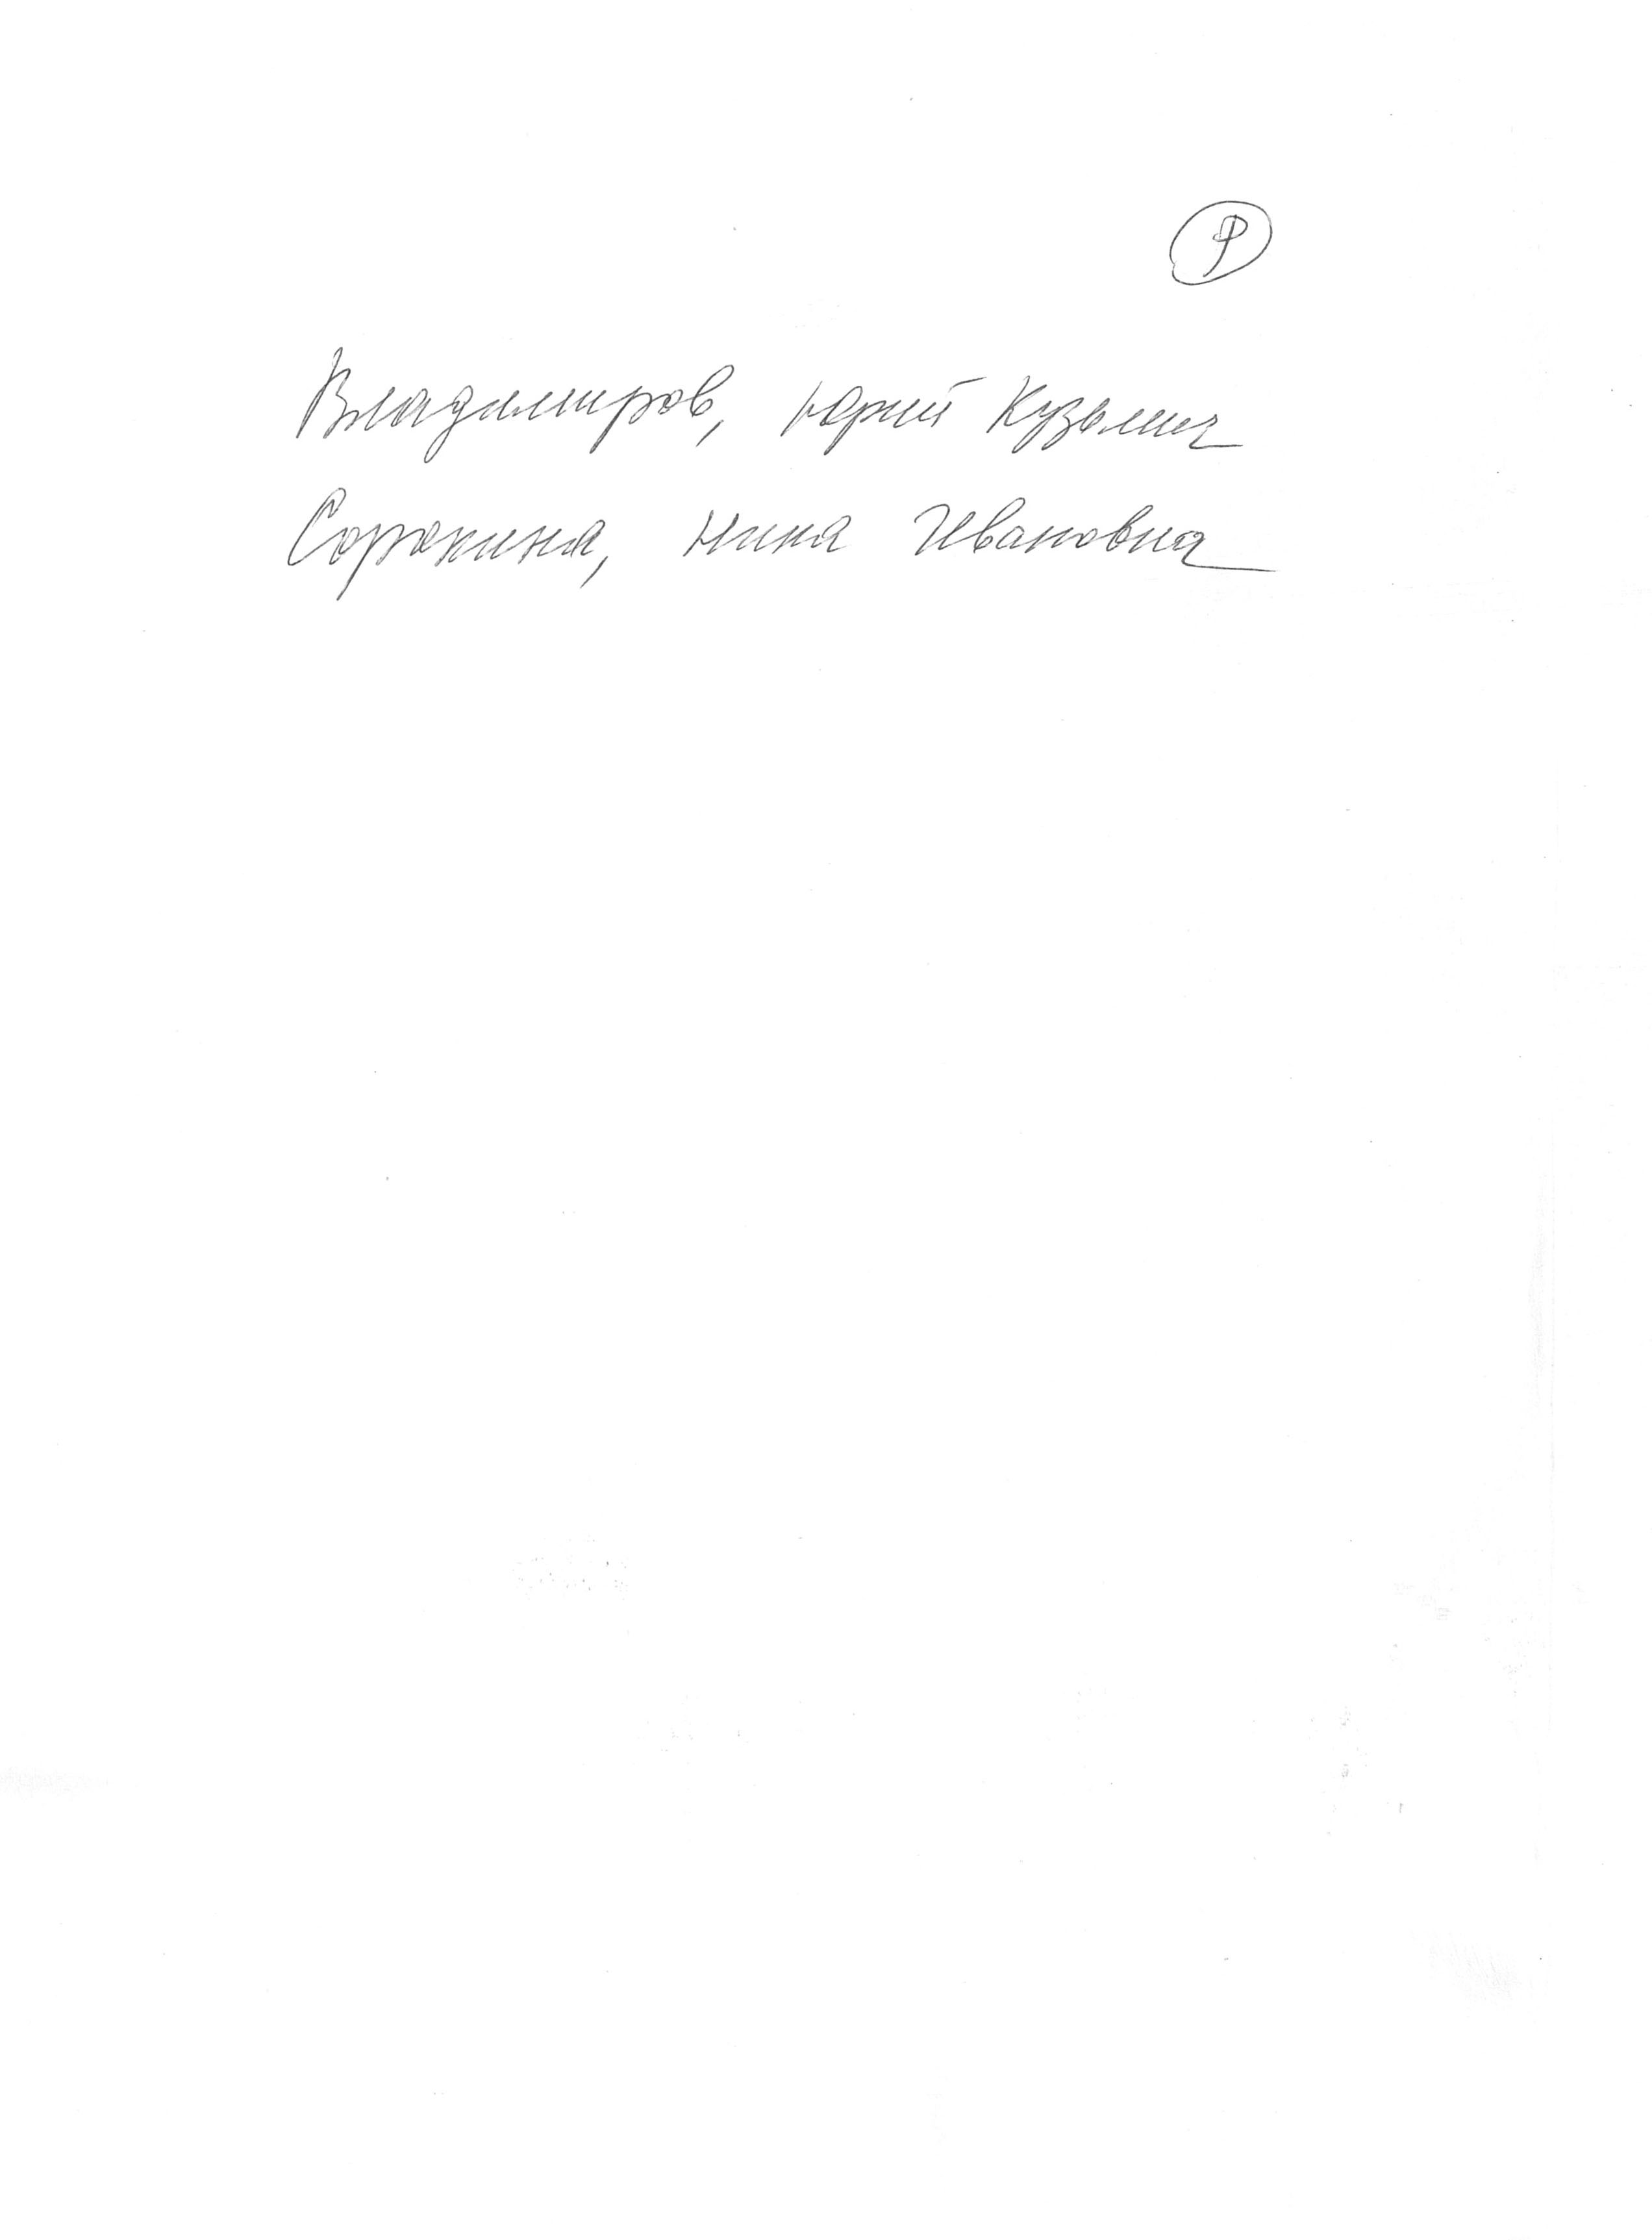 Владимиров, Юрий Кузьмич
Сорокина, Нина Ивановна